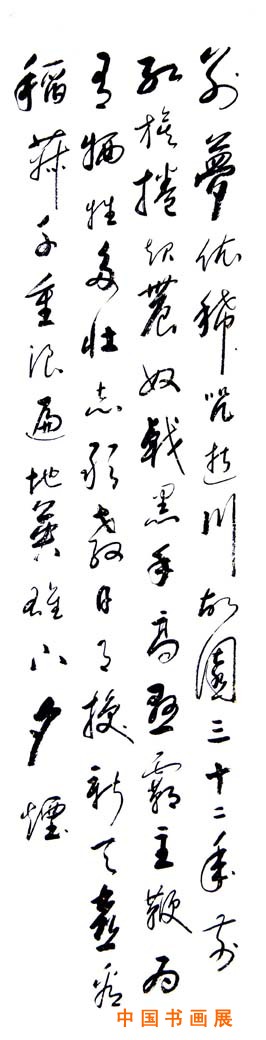 别夢依稀咒逝川故園三十二年前
红旗捲起農奴戟黑手高悬霸主鞭为
有牺牲多壮志敢教日月换新天喜看
稻菽千重浪遍地英雄下夕煙
中国书画展